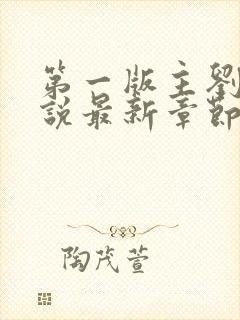 第一版主劉
說最新章節
陶茂萱